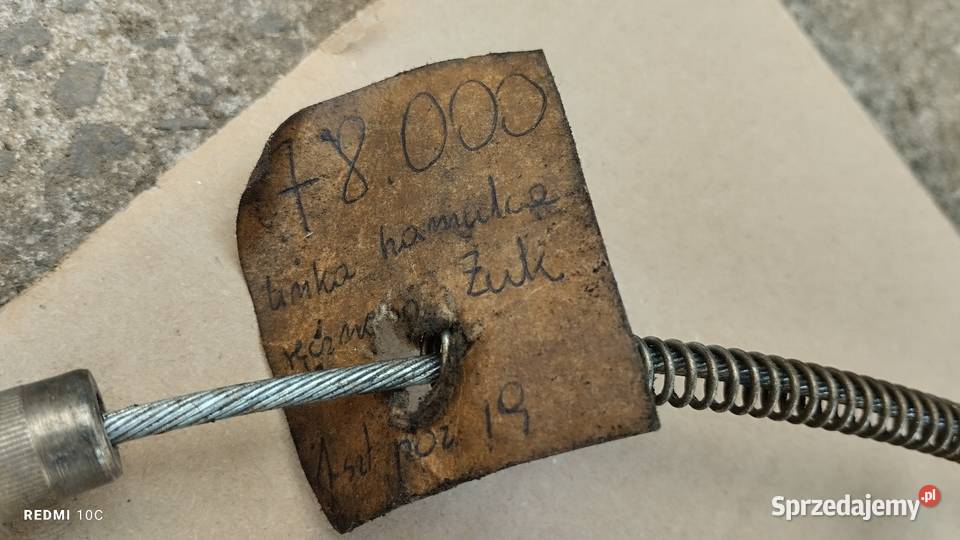 78.000
linka hamulca
ręcznego Żuk
1 szt poz 19
REDMI 10C
Sprzedajemy.pl